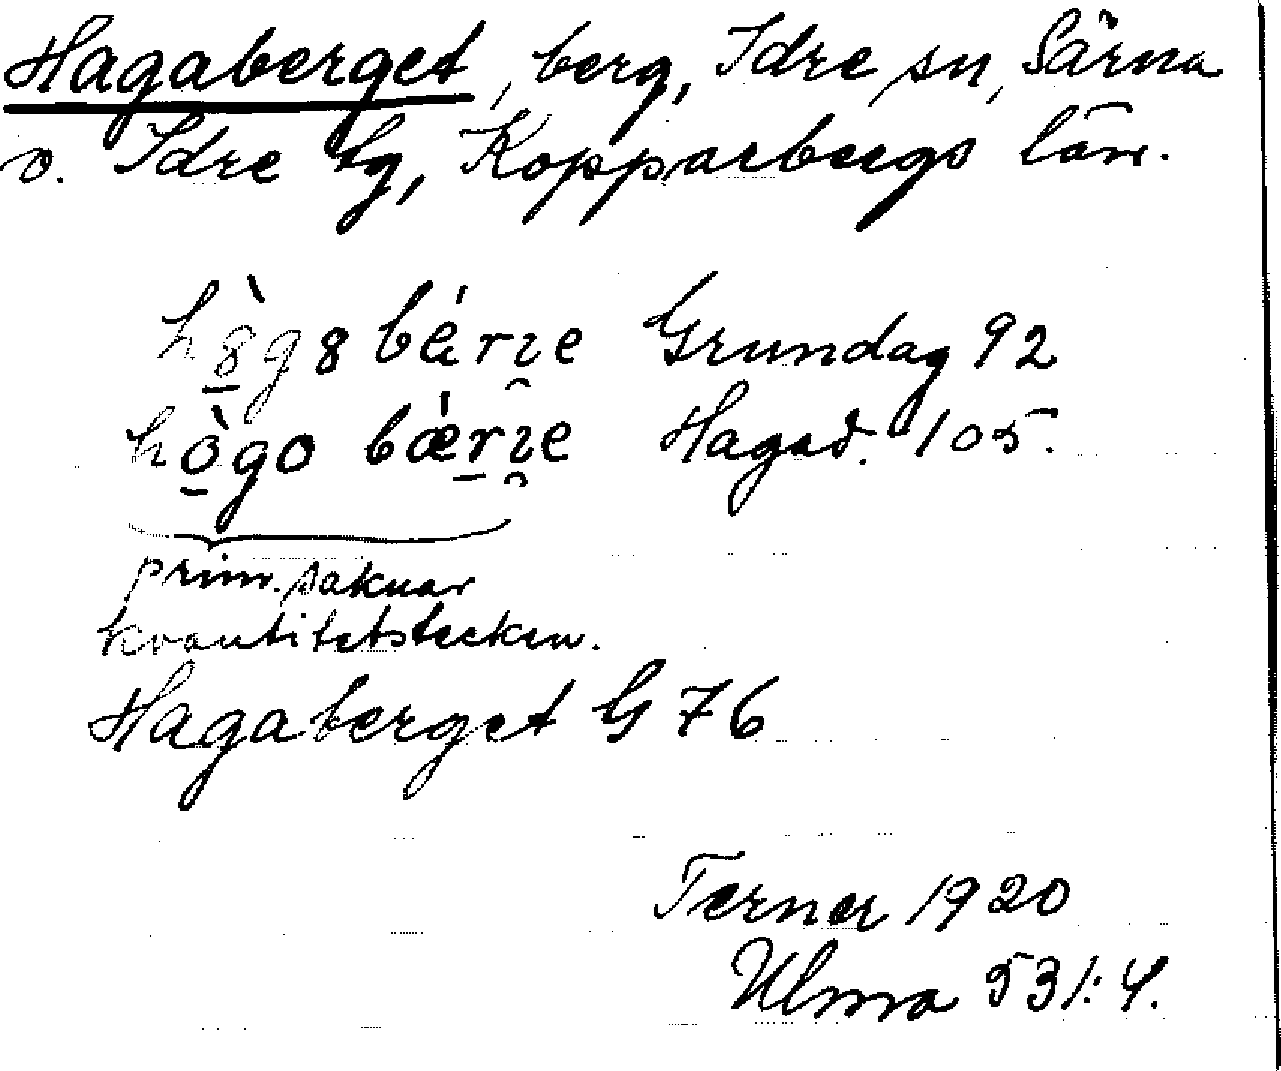 Hagaberget, berg, Idre sn, Särna
o. Idre tg, Kopparbergs län.
Grundag 92
hògo bǽrıe Hagad. 105.
prim. saknar
kvantitetstecken.
Hagaberget G 76
Terner 1920
Ulma 531:4.